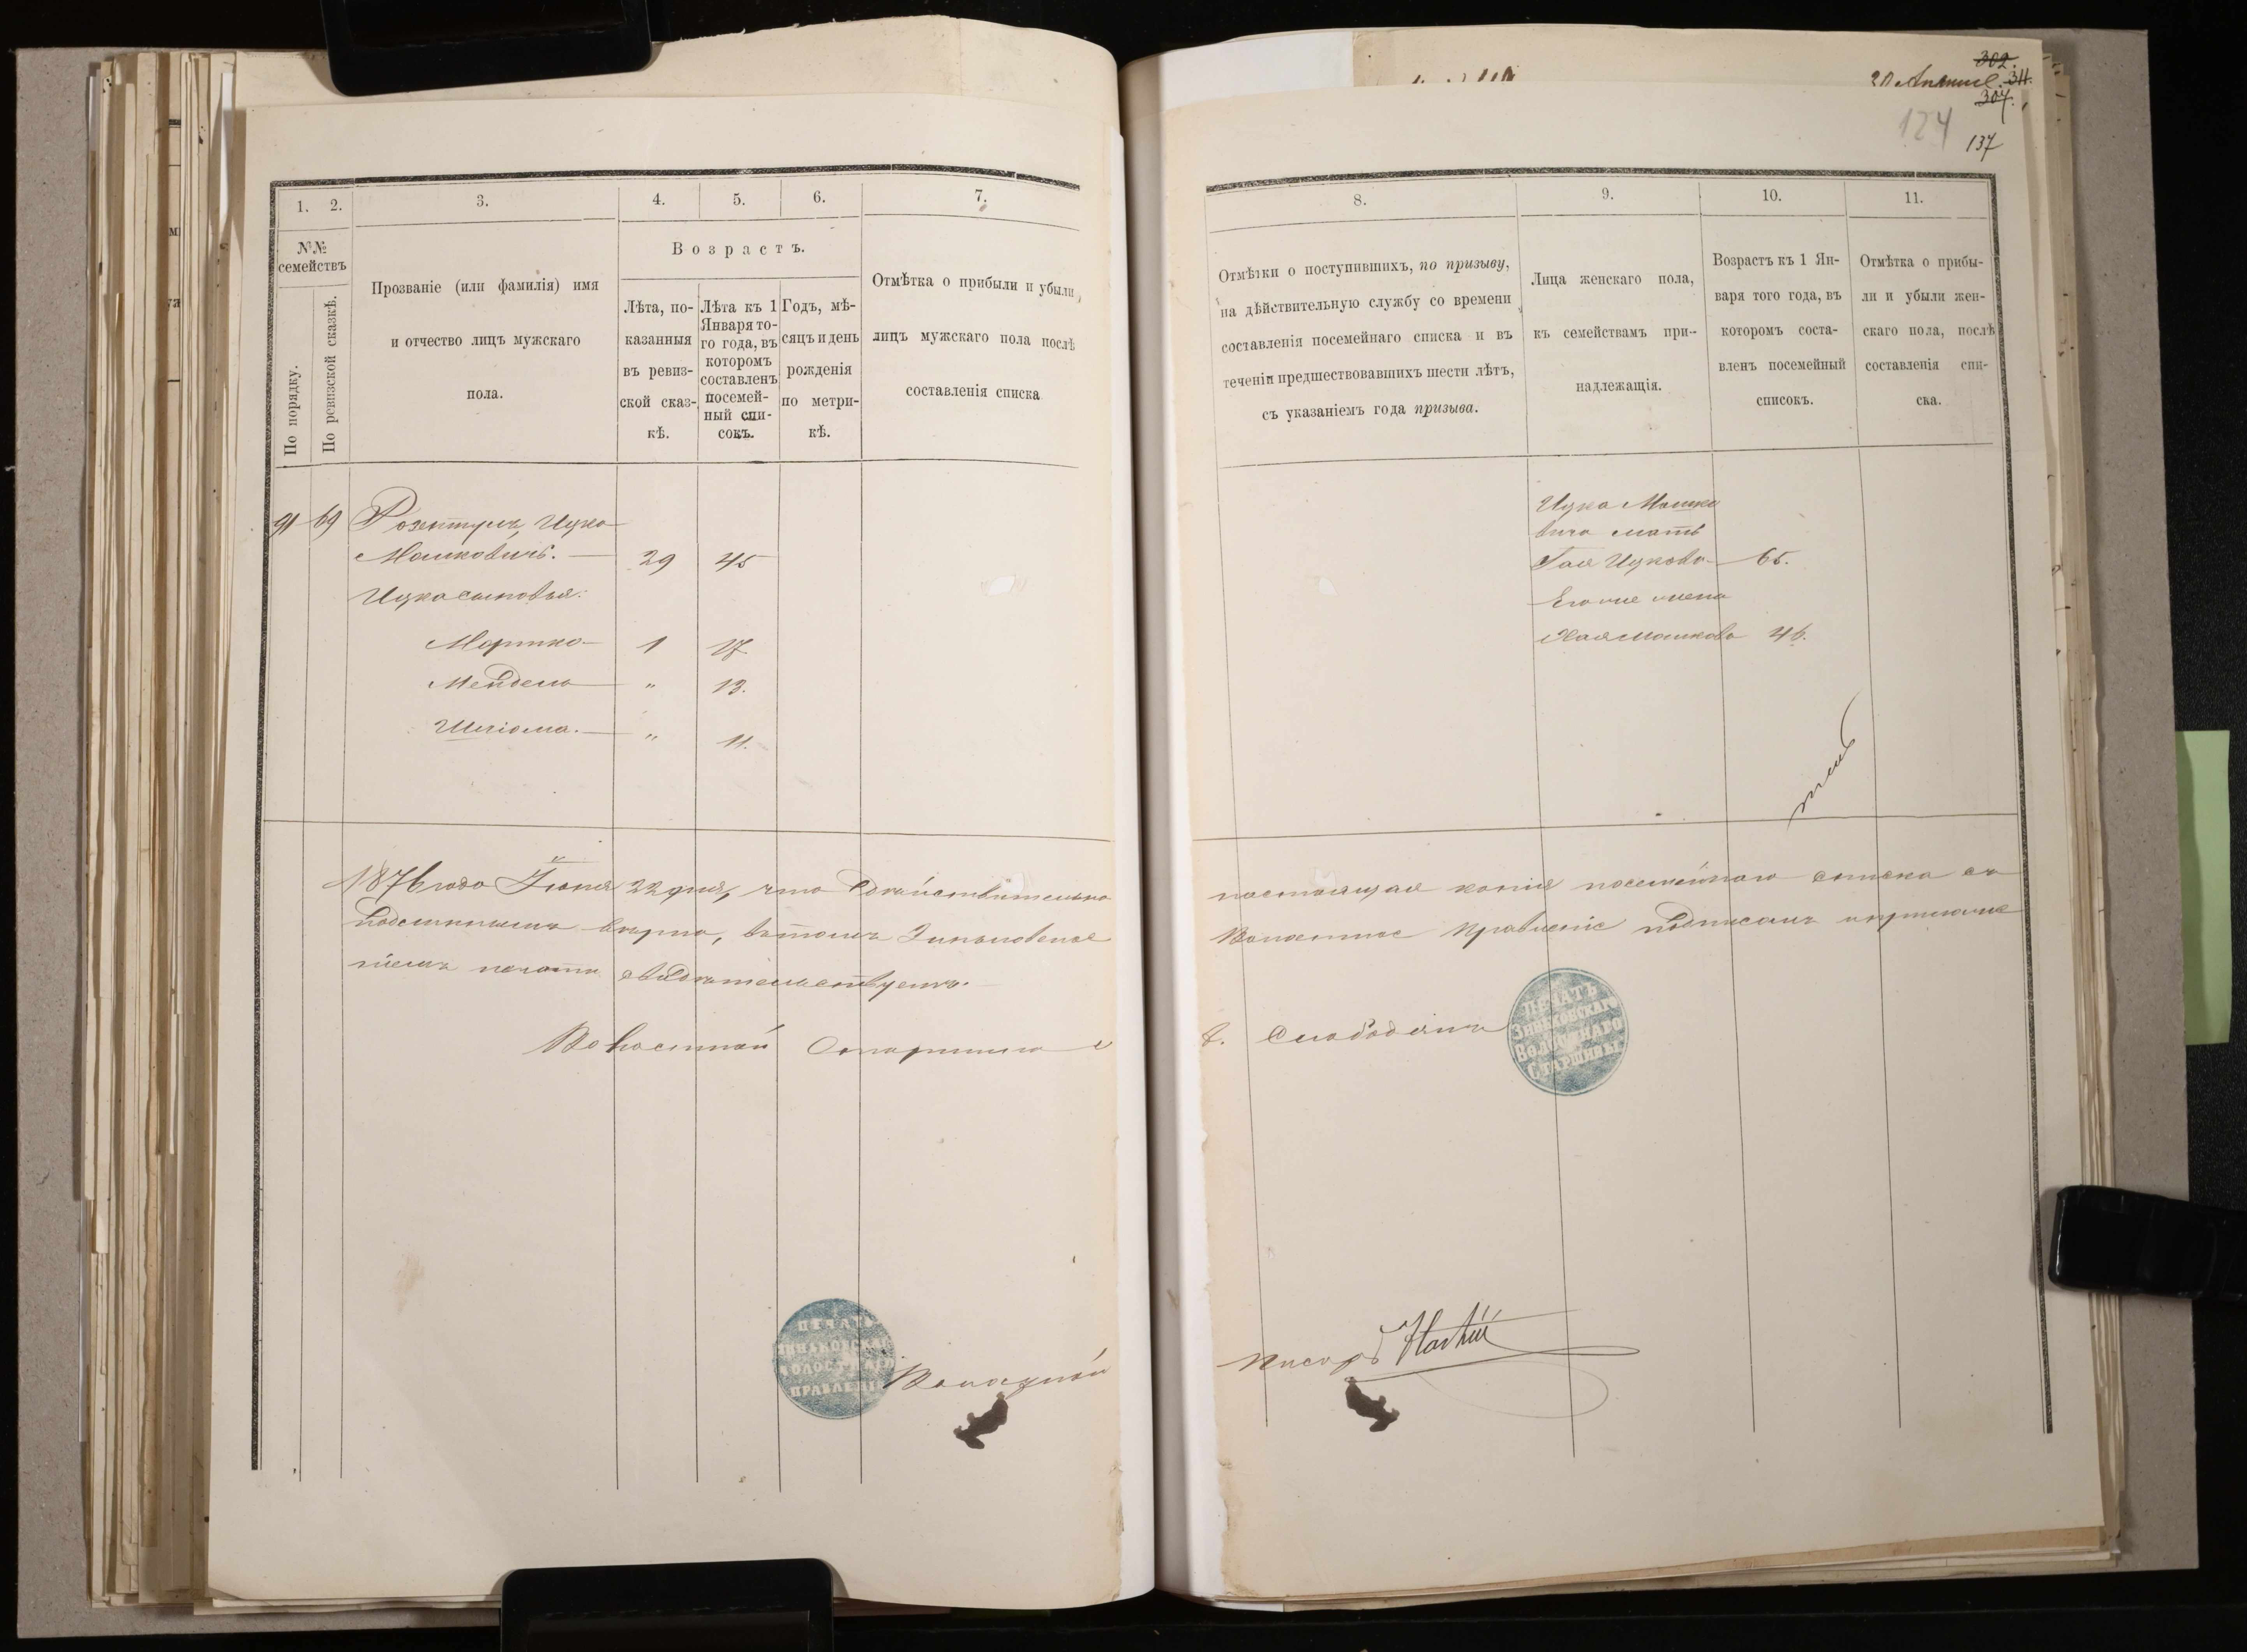 302.
311.
307.
124
137
1. 2. 3. 4. 5. 6. 7.
№№ семействъ
По порядку.
По ревизской сказкѣ.
Прозваніе (или фамилія) имя
и отчество лицъ мужскаго
пола.
Возрастъ.
Лѣта, по-
казанныя
въ ревиз-
ской сказ-
кѣ.
Лѣта къ 1
Января то-
го года, въ
котором‍ъ
составленъ
посемей-
ный спи-
сокъ.
Годъ, мѣ-
сяцъ и день
рожденія
по метри-
кѣ.
Отмѣтка о прибыли и убыли
лицъ мужскаго пола послѣ
составленія списка
8. 9. 10. 11.
Отмѣтки о поступившихъ, по призыву,
на дѣйствительную службу со времени
составленія посемейнаго списка и въ
теченіи предшествовавшихъ шести лѣтъ,
съ указаніемъ года призыва.
Лица женскаго пола,
къ семействамъ при-
надлежащія.
Возрастъ къ 1 Ян-
варя того года, въ
которомъ соста-
вленъ посемейный
списокъ.
Отмѣтка о прибы-
ли и убыли жен-
скаго пола, послѣ
составленія спи-
ска.
91 69 Ицко
Мошковичъ. 29 45
Ицка сыновья:
1 17
Мендель " 13.
Шліома. " 11.
Ицка Мошко
вича мать
Ицкова 65.
Его же жена
Хая Мошкова 46.
1876 года Іюня 22 дня, что настоящая копія посемейнаго списка съ
подлиннымъ вѣрна, въ томъ Зиньковское Волостное Правленіе подписомъ и приложе
ніемъ печати свидѣтельствуетъ.
Волостной Старшина Слободянъ
ПЕЧАТЬ
ЗИНЬКОВСКАГО
ВОЛОСТНАГО
СТАРШИНЫ
ПЕЧАТЬ
ЗИНЬКОВСКАГО
ВОЛОСТНАГО
ПРАВЛЕНІЯ
Волостной Писарь